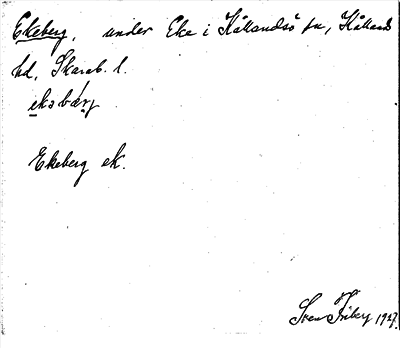 Ekeberg, under Eke i Kållandsö sn, Kållands
hd, Skarab. l.
ekəbærj
Ekeberg ek.
Sven Friberg 1927.